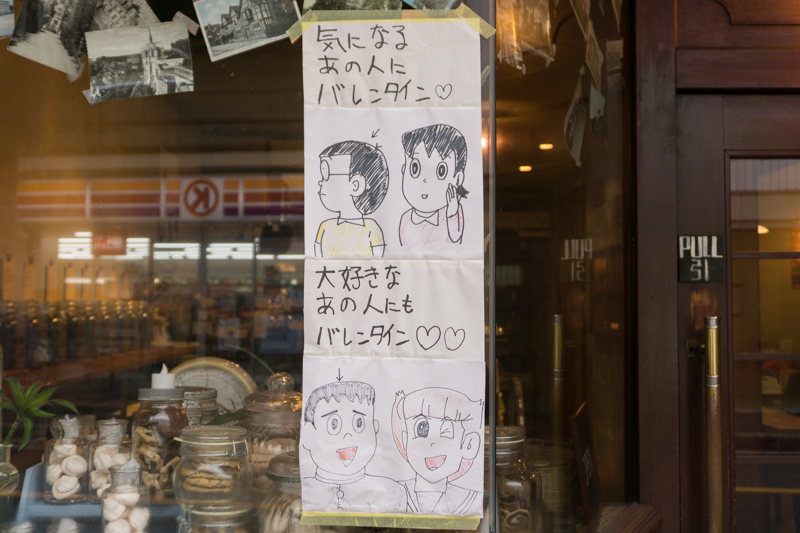 気になる
あの人に
バレンタイン♡
大好きな
あの人にも
バレンタイン♡♡
PULL
引
K